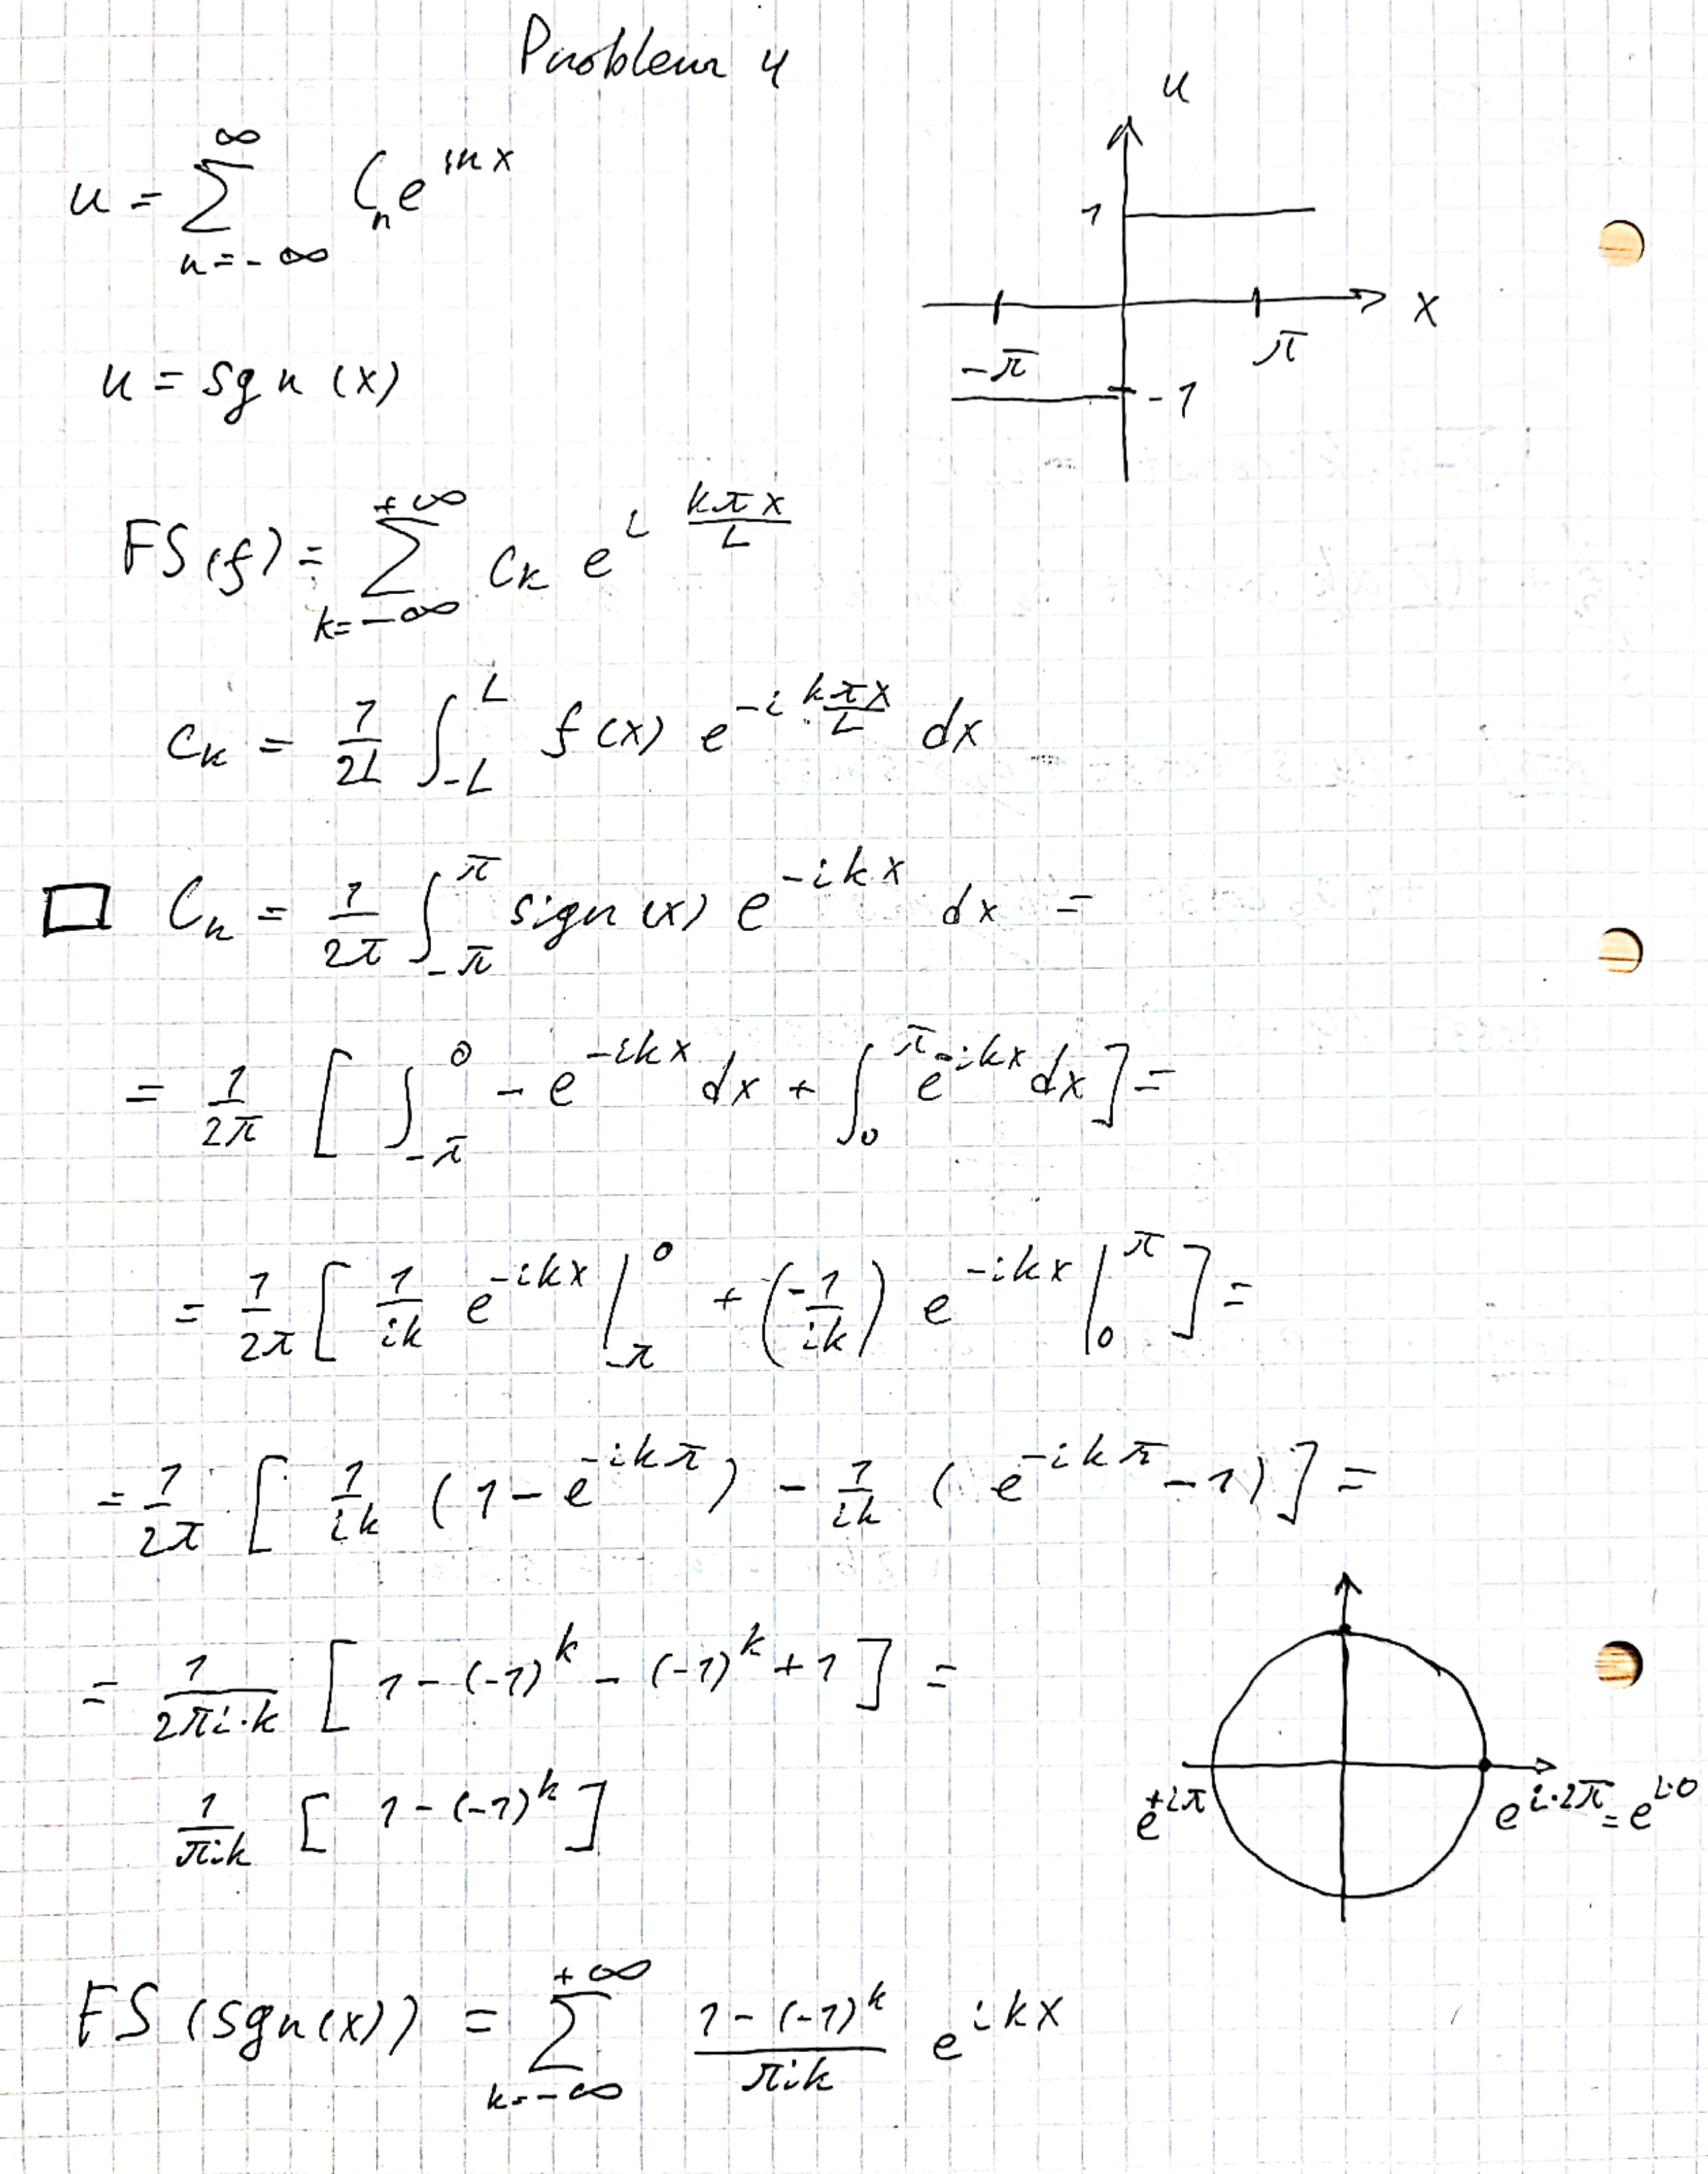 Problem 4
u = \sum_{n=-\infty}^{\infty} C_n e^{inx}
u
1
x
-π
π
-1
u = sgn (x)
FS(f) = \sum_{k=-\infty}^{+\infty} c_k e^{i \frac{kπx}{L}}
c_k = \frac{1}{2L} \int_{-L}^{L} f(x) e^{-i \frac{kπx}{L}} dx
□ C_k = \frac{1}{2π} \int_{-π}^{π} sign(x) e^{-ikx} dx =
= \frac{1}{2π} [ \int_{-π}^{0} - e^{-ikx} dx + \int_{0}^{π} e^{-ikx} dx ] =
= \frac{1}{2π} [ \frac{1}{ik} e^{-ikx} |_{-π}^{0} + (\frac{-1}{ik}) e^{-ikx} |_{0}^{π} ] =
= \frac{1}{2π} [ \frac{1}{ik} (1 - e^{-ikπ}) - \frac{1}{ik} (e^{-ikπ} - 1) ] =
= \frac{1}{2πi·k} [ 1 - (-1)^k - (-1)^k + 1 ] =
\frac{1}{πik} [ 1 - (-1)^k ]
e^{+iπ}
e^{i·2π} = e^{i·0}
FS (sgn(x)) = \sum_{k=-\infty}^{+\infty} \frac{1 - (-1)^k}{πik} e^{ikx}